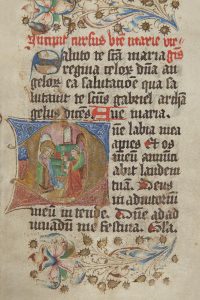 Incipit cursus bte marie vir
Saluto te scā maria gīs
regina celorͬ dn̄a an
gelorͬ ea salutacōe qua sa
lutauit te scūs gabriel archā
gelus dicēs Aue maria.
ne labia mea
apies Et os
meū annūci
abit laudem
tuā. Deus
in adiutoriū
meū in tende. Dn̄e ad ad
iuuandū me festina. Gla